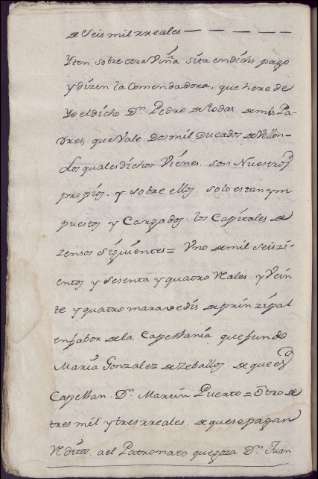 de seis mil rreales — — — —
Yten sobre otra Viña sita en dicho pago
y dizen la Comendadora, que heredé
Yo el dicho Dn. Pedro de Rodas de mis Pa-
dres, que Vale dos mil ducados de Vellon-
Los quales dichos Vienes son Nuestros
propios, y sobre ellos solo estan ym
puestos y Cargados los Capitales de
zensos siguientes = Uno de mil seiszi-
entos y sesenta y quatro Reales y Vein
te y quatro maravedis de prinzipal
en fabor de la Capellania que fundó
Maria Gonzalez de Zeballos de que es
Capellan Dn. Martin Puerto = Otro de
tres mil y tres rreales de que se pagan
Reditos al Patronato que goza Dn. Juan